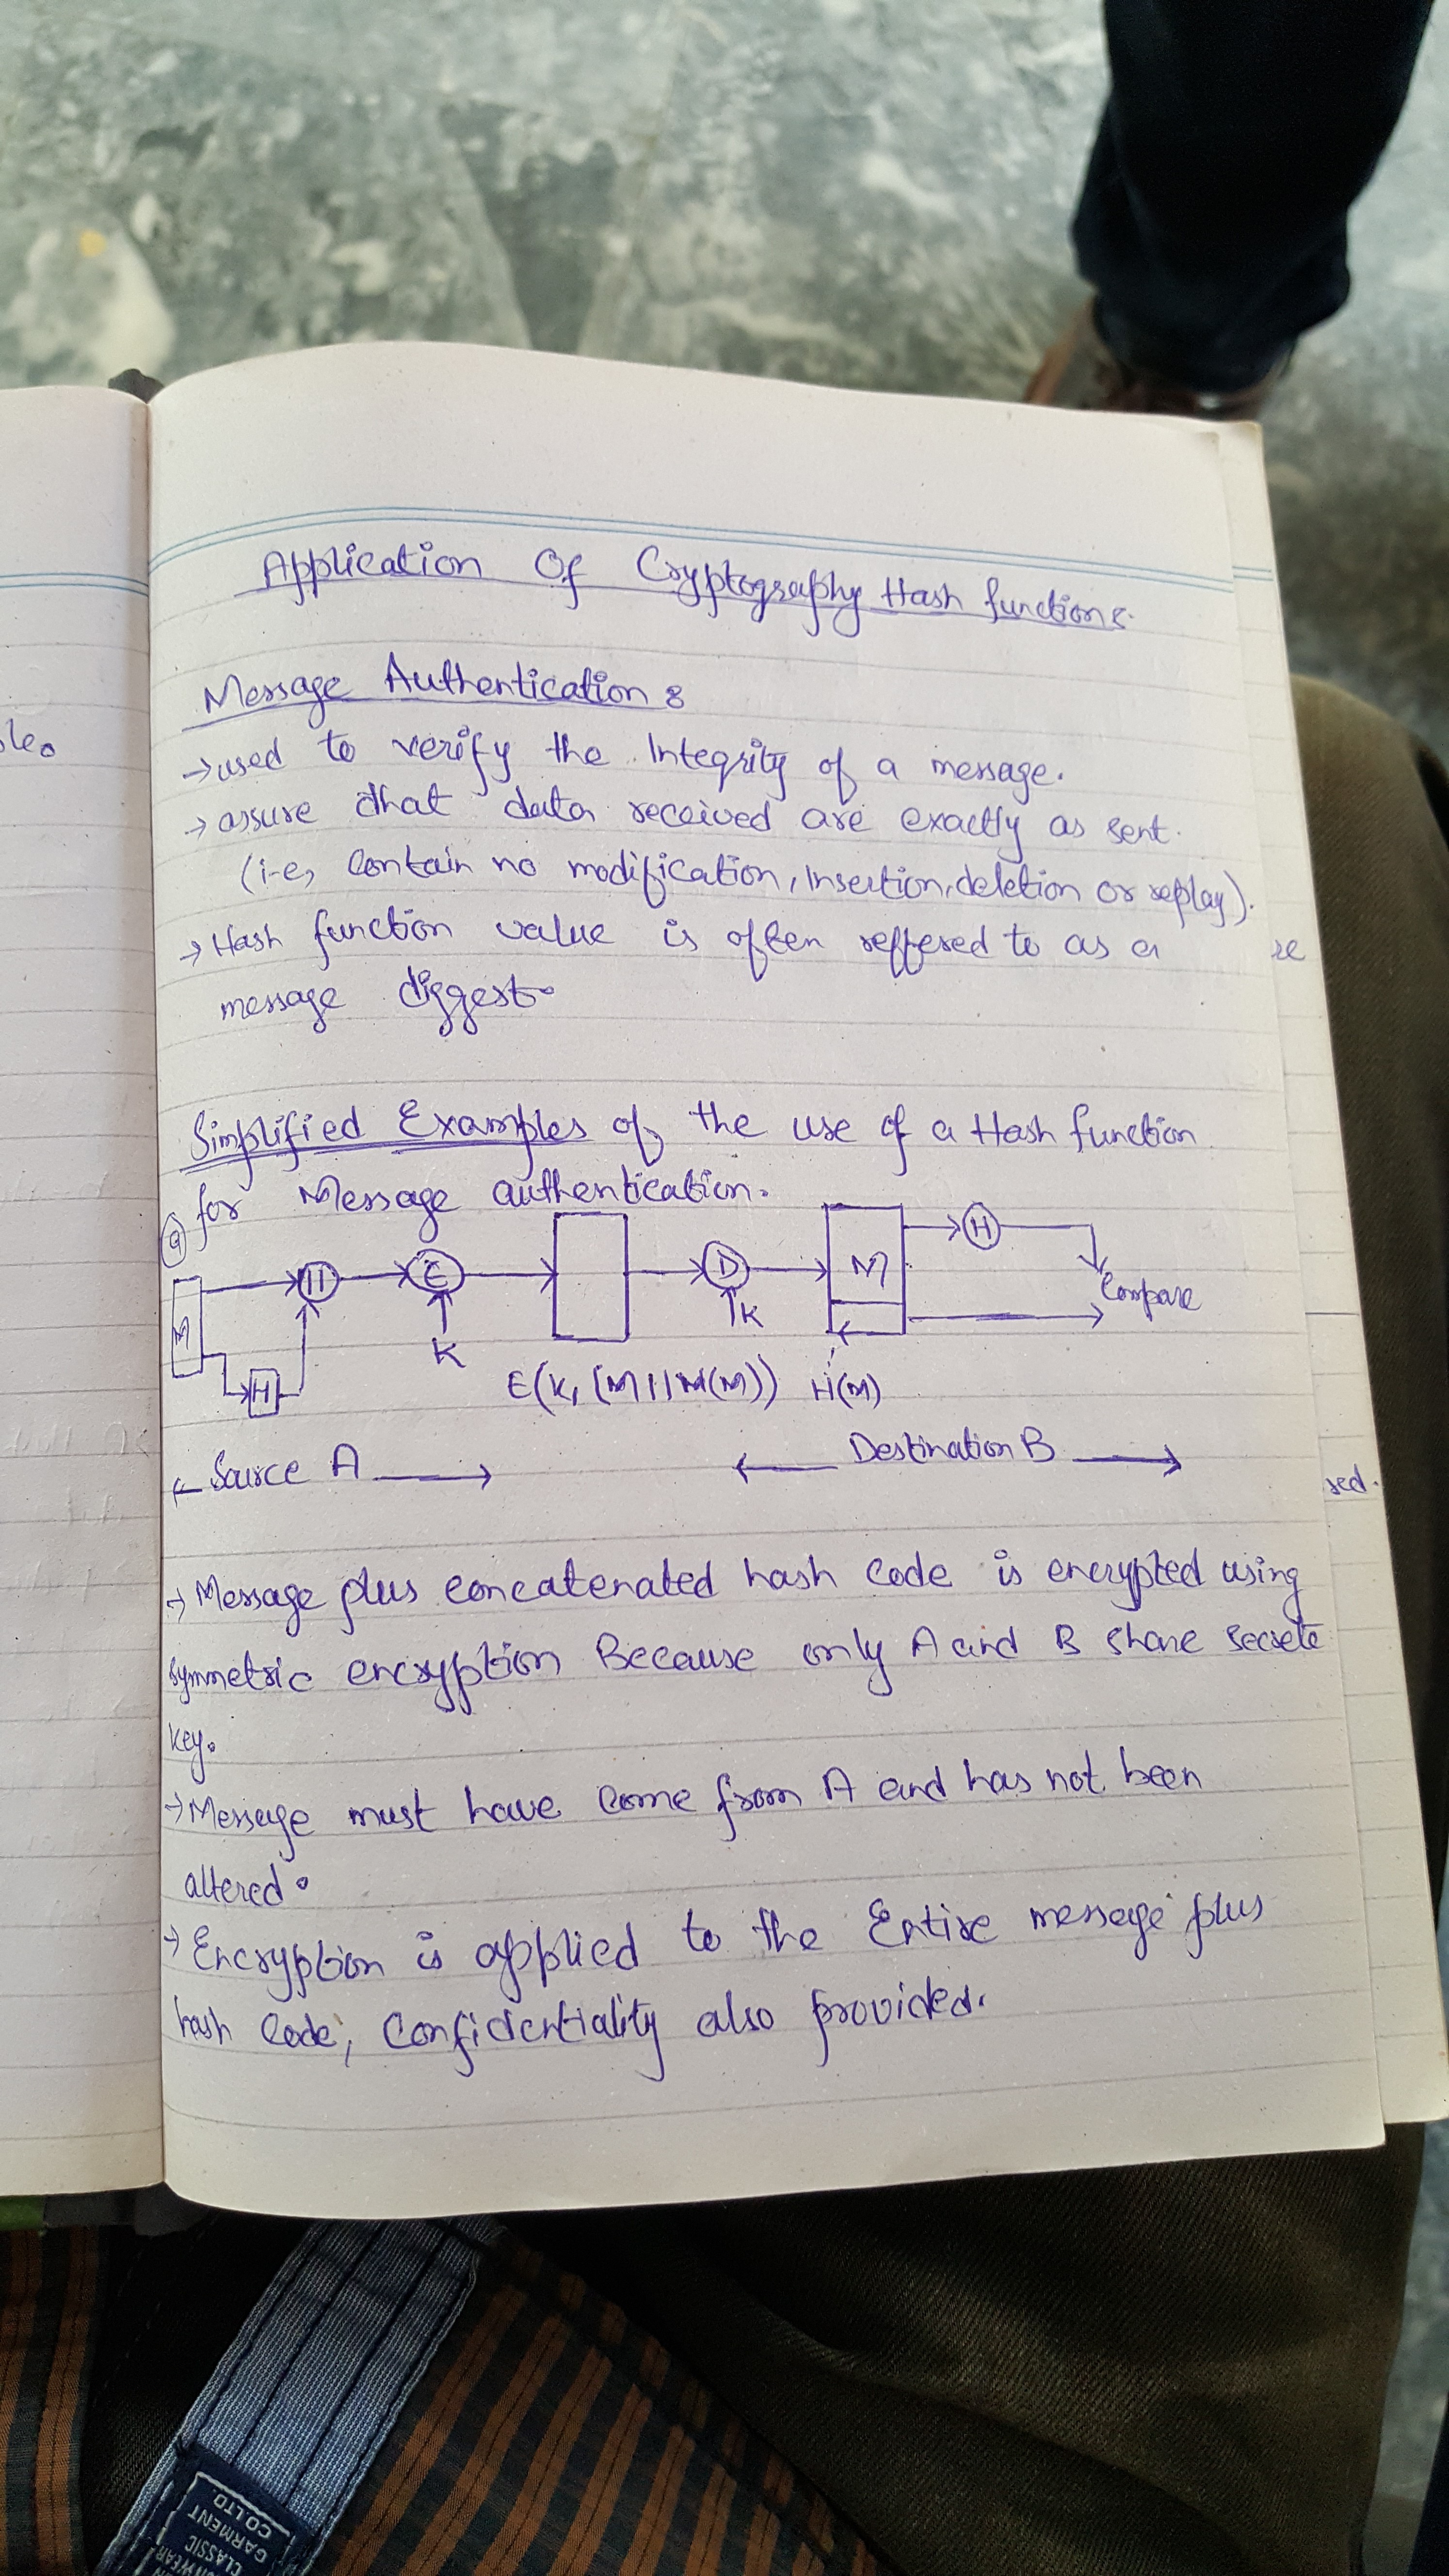 Application Of Cryptography Hash functions.
Message Authentication :
→ used to verify the Integrity of a message.
→ assure that data received are exactly as sent.
(i-e, Contain no modification, Insertion, deletion or replay).
→ Hash function value is often reffered to as a
message diggest.
Simplified Examples of the use of a Hash function
for Message authentication.
(a)
M || E D M H Compare
H K K
E(K, (M || H(M)) H(M)
← Source A → ← Destination B →
→ Message plus concatenated hash Code is encrypted using
symmetric encryption Because only A and B share secrete
key.
→ Message must have Come from A and has not been
altered.
→ Encryption is applied to the Entire message plus
hash Code, Confidentiality also provided.
ple.
re
sed.
CLASSIC
GARMENT
CO.LTD.